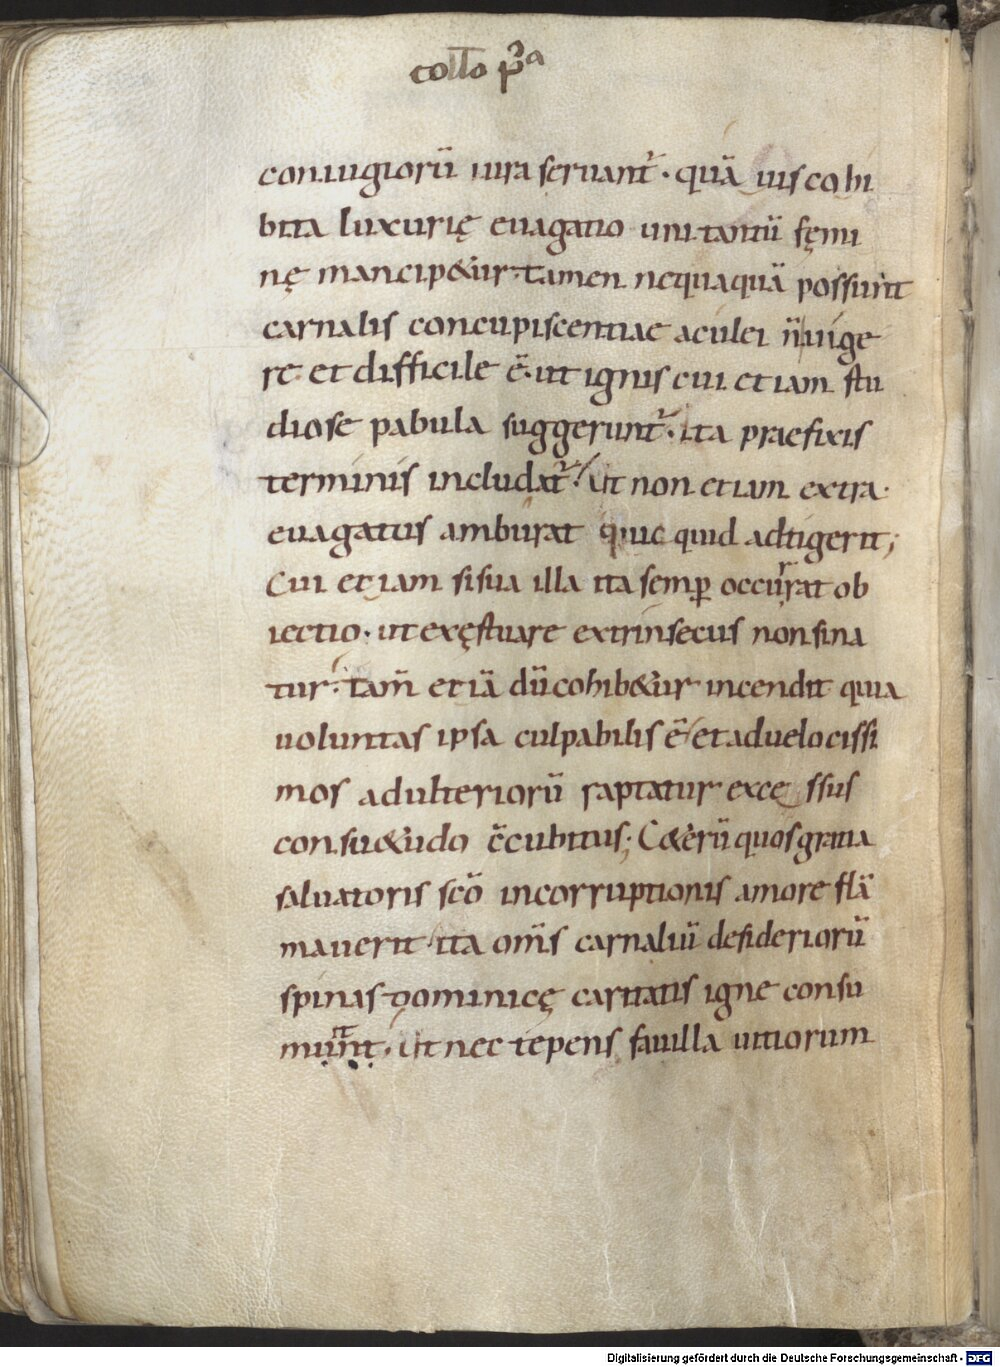 collo pͥa
coniugiorū iura seruant᷑ · quā uis cohi
bita luxurię euagatio uni tantū fęmi
nę mancip&ur · tamen nequaquā possunt
carnalis concupiscentiae aculei ñ uige
re · et difficile ē · ut ignis cui etiam stu
diose pabula suggerunt᷑ · ita praefixis
terminis includat᷑ · ut non etiam extra ·
euagatus amburat quic quid adtigerit ;
Cui etiam si sua illa ita semꝑ occurrat ob
iectio · ut exęstuare extrinsecus non sina
tur · tam̄ etiā dū cohib&ur incendit quia
uoluntas ipsa culpabilis ē et ad uelocissi
mos adulteriorū raptatur exce ssus
consu&udo c̄cubitus ; C&erū quos gratia
saluatoris scō incorruptionis amore flā
mauerit · ita om̄s carnaliū desideriorū
spinas dominicę caritatis igne consu
munt · ut nec tepens fauilla uitiorum
Digitalisierung gefördert durch die Deutsche Forschungsgemeinschaft - DFG